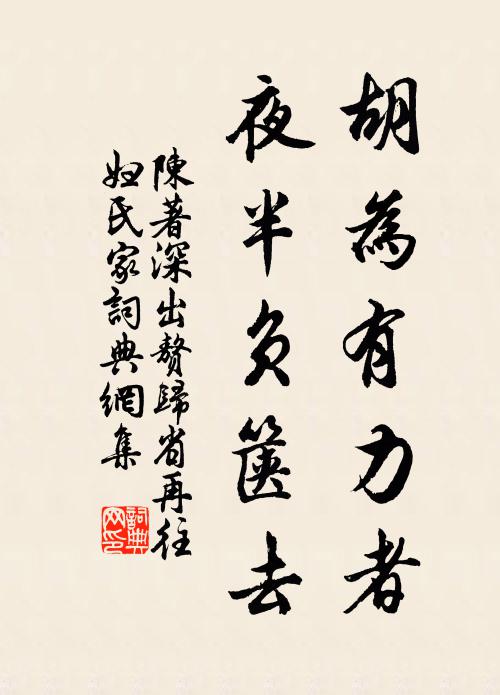 胡為有力者
夜半負篋去
陳著深出贅歸省再往
妯氏家詞典網集
詞典
网印